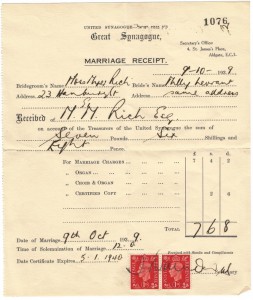 1076
UNITED SYNAGOGUE
Great Synagogue,
Secretary's Office
4, St. James's Place,
Aldgate, E.C.3.
MARRIAGE RECEIPT.
9-10-1939
Bridegroom's Name Rich Bride's Name
Address 23 Address same address
Received of M. M. Rich Esq
on account of the Treasurers of the United Synagogue the sum of
Seven Pounds Six Shillings and
Eight
FOR MARRIAGE CHARGES 7 4 2
" ORGAN
" CHOIR & ORGAN
" CERTIFIED COPY 2 6
TOTAL 7 6 8
Date of Marriage 9th Oct 1939
Time of Solemnization of Marriage 12.0
Date Certificate Expires 5-1-1940